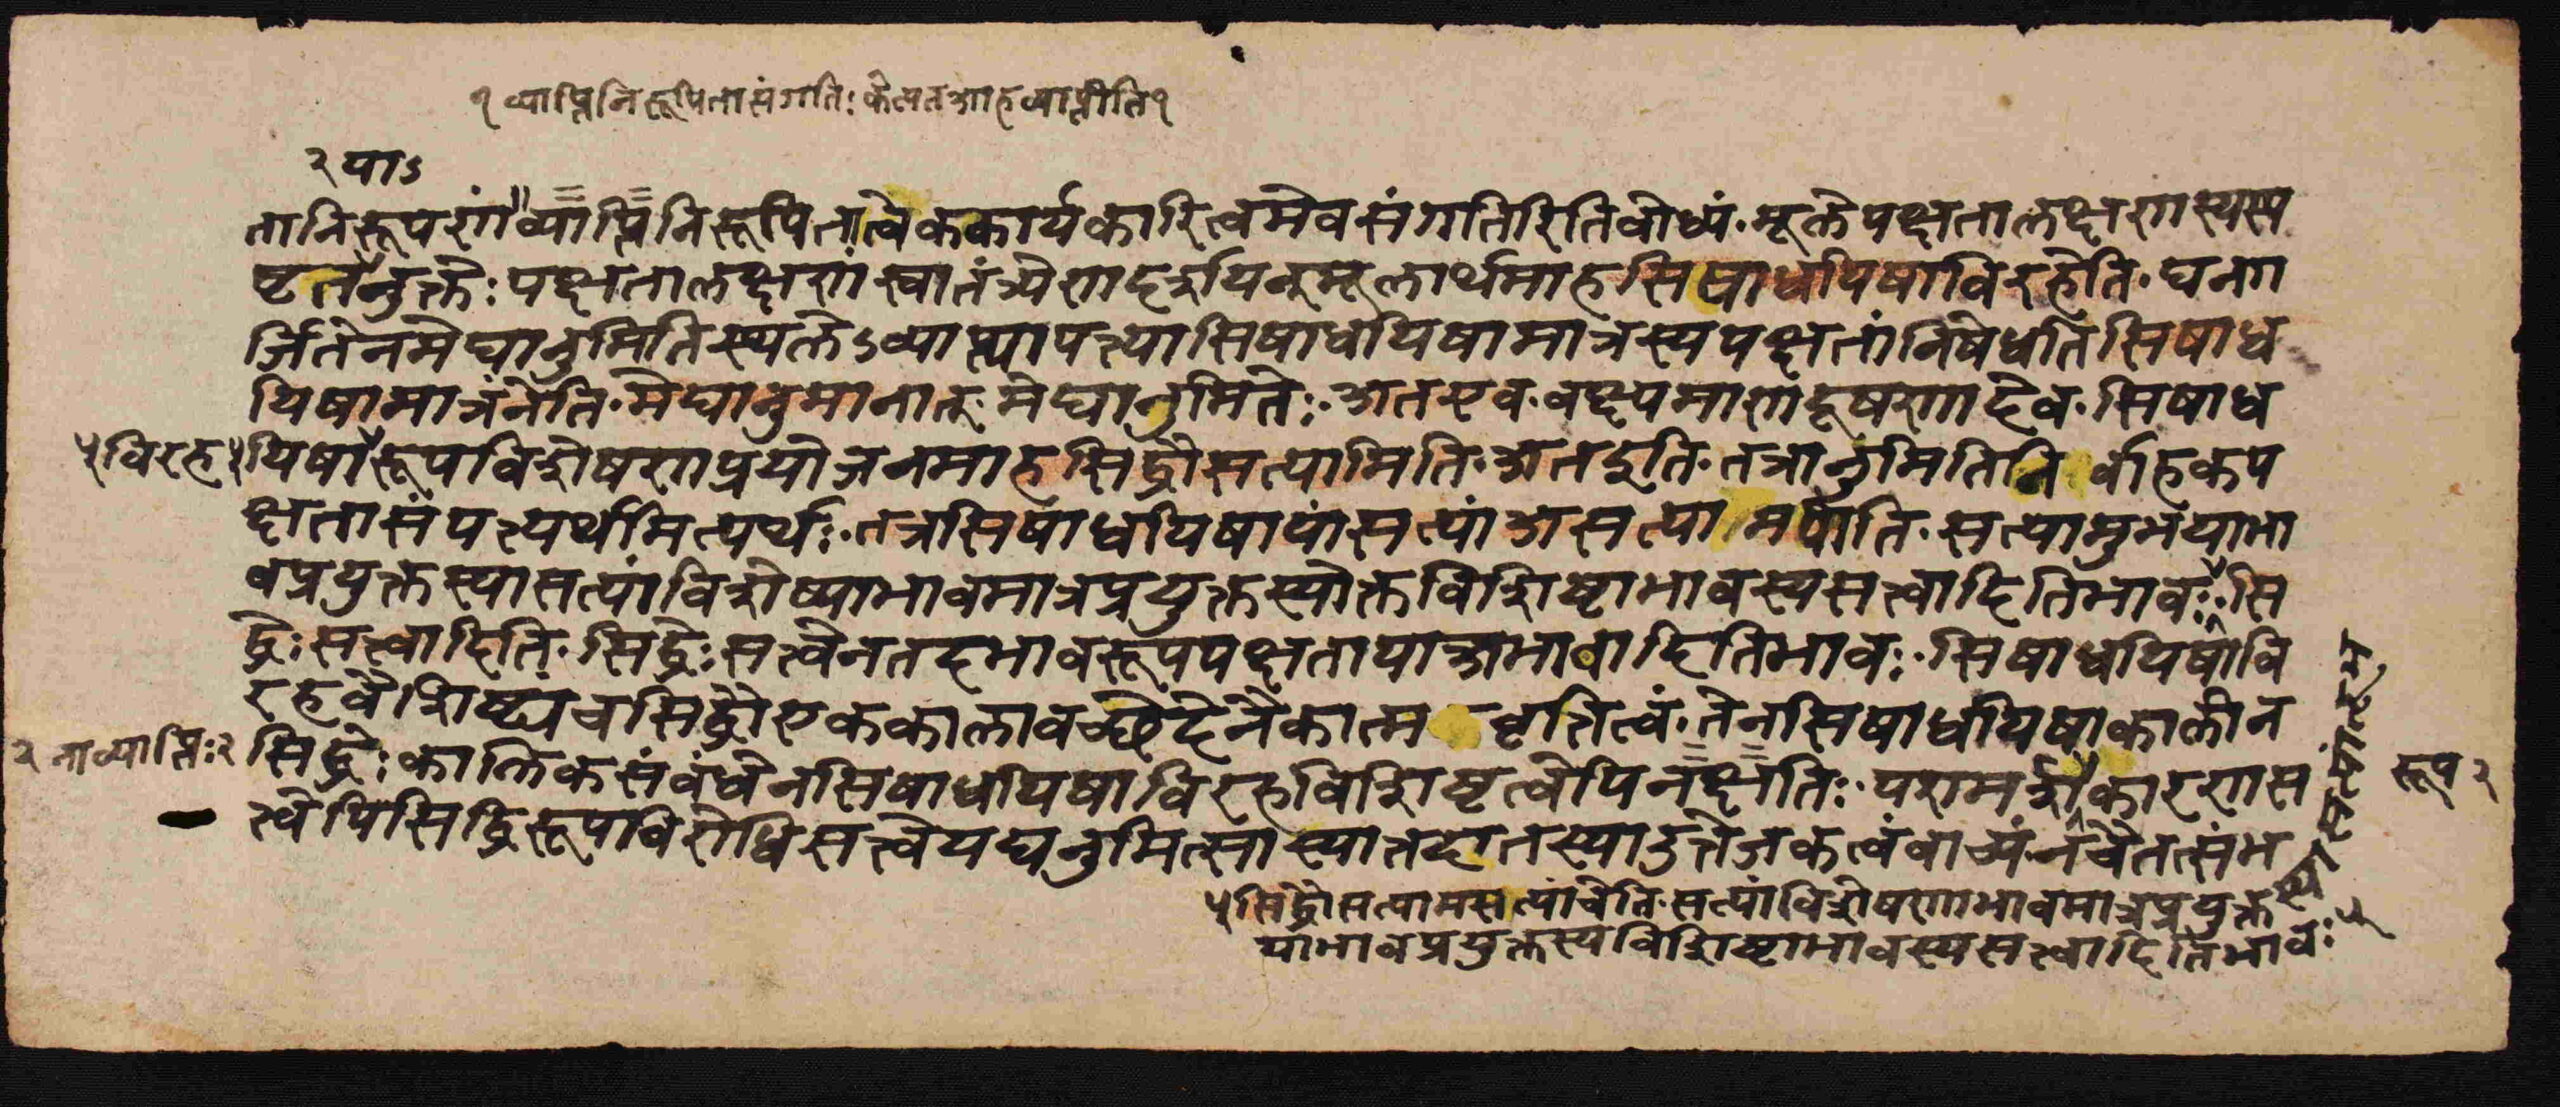 १ व्याप्तिनिरूपितासंगतिः केत्यतआहव्याप्तीति१
२ पाऽ
तानिरूपणां॥व्याप्तिनिरूपितात्वेककार्यकारित्वमेवसंगतिरितिबोध्यं॰मूलेपक्षतालक्षणस्यस्प
ष्टतैनुक्तेः पक्षतालक्षणंस्वातंत्र्येणदर्शयिनुमूलार्थमाहसिषाधयिषाविरहेति॰घनग
र्जितेनमेघानुमितिस्थलेऽव्याप्त्यापत्त्यासिषाधयिषामात्रस्यपक्षतांनिषेधतिसिषाध
यिषामात्रंनेति॰मेघानुमानात् मेघानुमितेः॰अतएव॰वक्ष्यमाणदूषणादेव॰सिषाध
५विरह५ यिषा॥रूपविशेषणप्रयोजनमाहसिद्धौसत्यामिति॰अतइति॰तत्रानुमितिनिर्वाहकप
क्षतासंपत्त्यर्थमित्यर्थः॰तत्रसिषाधयिषायांसत्यांअसत्यामपीति॰सत्यामुभयाभा
वप्रयुक्तस्यासत्यांविशेष्याभावमात्रप्रयुक्तस्योक्तविशिष्टाभावस्यसत्त्वादितिभावः॰॥सि
द्धेःसत्त्वादिति॰सिद्धेःसत्वेनतदभावरूपपक्षतायाअभावादितिभावः॰सिषाधयिषावि
रहवैशिष्ट्यंचसिद्धौएककालावच्छेदेनैकात्मवृत्तित्वं॰तेनसिषाधयिषाकालीन
२ नाव्याप्तिः२ सिद्धेःकालिकसंबंधेनसिषाधयिषाविरहविशिष्टत्वेपिनक्षतिः॰परामर्श॥कारणस
त्वेपिसिद्धिरूपविरोधिसत्त्वेयद्यनुमित्सास्यात्तदातस्याउत्तेजकत्वंवाच्यं॰नचैतत्संभ
रूप २
५सिद्धौसत्यामसत्यांचेति॰सत्यांविशेषणाभावमात्रप्रयुक्त
याभावप्रयुक्तस्यविशिष्टाभावस्यसत्त्वादितिभावः५